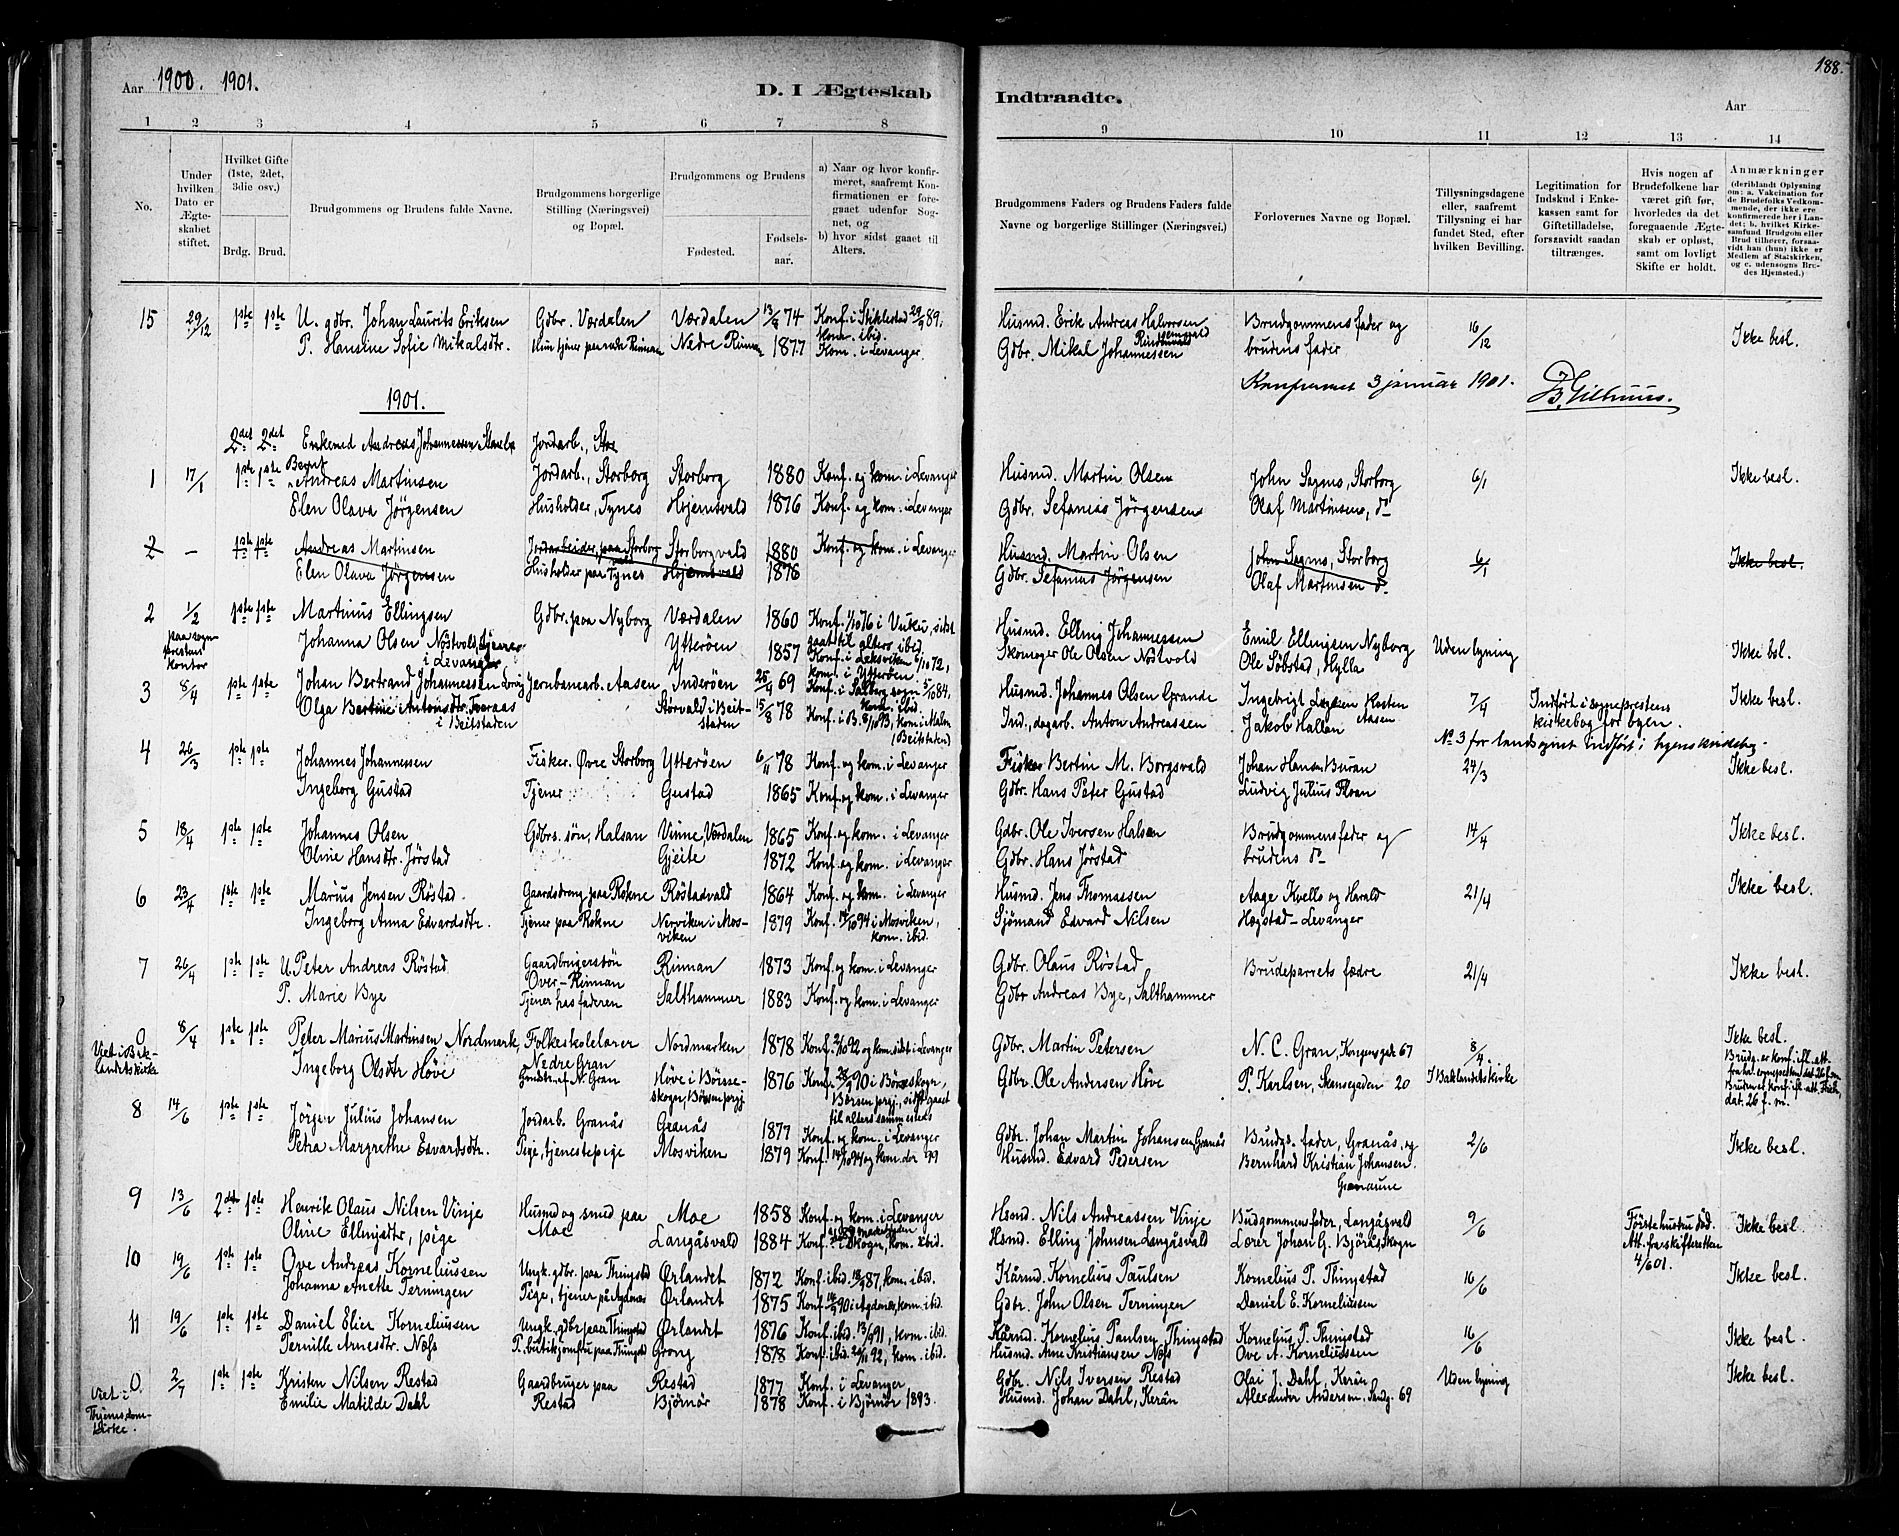 188.
Aar 1900. 1901.
D. I Ægteskab
Indtraadte.
Aar
1 2 3 4 5 6 7 8
9 10 11 12 13 14
No.
Under hvilken Dato er Ægteskabet stiftet.
Hvilket Gifte (1ste, 2det, 3die osv.)
Brdg. Brud.
Brudgommens og Brudens fulde Navne.
Brudgommens borgerlige Stilling (Næringsvei) og Bopæl.
Brudgommens og Brudens
Fødested.
Fødselsaar.
a) Naar og hvor konfirmeret, saafremt Konfirmationen er foregaaet udenfor Sognet, og
b) hvor sidst gaaet til Alters.
Brudgommens Faders og Brudens Faders fulde Navne og borgerlige Stillinger (Næringsvei.)
Forlovernes Navne og Bopæl.
Tillysningsdagene eller, saafremt Tillysning ei har fundet Sted, efter hvilken Bevilling.
Legitimation for Indskud i Enkekassen samt for Giftetilladelse, forsaavidt saadan tiltrænges.
Hvis nogen af Brudefolkene har været gift før, hvorledes da det foregaaende Ægteskab er opløst, samt om lovligt Skifte er holdt.
Anmærkninger
(deriblandt Oplysning om: a. Vakcination for de Brudefolks Vedkommende, der ikke ere konfirmerede her i Landet; b. hvilket Kirkesamfund Brudgom eller Brud tilhører, forsaavidt han (hun) ikke er Medlem af Statskirken, og c. udensogns Brudes Hjemsted.)
15 29/12 1ste 1ste U. gdbr. Johan Laurits Eriksen Gdbr. Værdalen Værdalen 13/8 74 Konf. i Stiklestad 29/9 89, kom. ibid. Husmd. Erik Andreas Halvorsen Brudgommens fader og 16/12 Ikke besl.
P. Hansine Sofie Mikalsdtr. Nedre Rinnan 1877 Kom. i Levanger. Gdbr. Mikal Johannessen brudens fader
Konfereret 3 januar 1901. Gilhuus.
1901.
2det 2det Enkemd Andreas Johannessen Jordarb., Stor
1 17/1 1ste 1ste Bernt Andreas Martinsen Jordarb., Storborg Storborg 1880 Konf. og kom. i Levanger Husmd. Martin Olsen John Sagmo, Storborg 6/1 Ikke besl.
Elen Olava Jørgensen Husholder, Tynes Hojemsvald 1876 Konf. og kom. i Levanger Gdbr. Sefanias Jørgensen Olaf Martinsen, do
2 – 1ste 1ste Andreas Martinsen Jordarbeider, paa Storborg Storborgvald 1880 Konf. og kom. i Levanger Husmd. Martin Olsen John Sagmo, Storborg 6/1 Ikke besl.
Elen Olava Jørgensen Husholder paa Tynes Hojemsvald 1876 Gdbr. Sefanias Jørgensen Olaf Martinsen do
2 1/2 1ste 1ste Martinus Ellingsen Gdbr. paa Nyborg Værdalen 1860 Konf. 1/10 76 i Vuku, sidst gaat til alters ibid. Husmd. Elling Johannessen Emil Ellingsen Nyborg Uden lysning Ikke besl.
paa sogneprestens kontor Johanna Olsen Nøstvold, tjener i Levanger Ytterøen 1857 Konf. i Leksviken 6/10 72, kom. i Ytterøen. Skomager Ole Olsen Nøstvold Ole Søbstad, Hylla
3 8/4 1ste 1ste Johan Bertrand Johannessen Jernbanearb. Aasen Inderøen 25/4 69 Konf. i Salberg sogn 5/10 84, kom. ibid. Husmd. Johannes Olsen Grande Ingebrigt Larsen Hosten Aasen 7/4 Indført i sogneprestens kirkebog for byen. Ikke besl.
Olga Bertine Antonsdtr. i Beitstaden Storvald i Beitstaden 15/8 78 Konf. i B. 8/10 93, kom. i Malm (Beitstaden) Ind., dagarb. Anton Andreassen Jakob Hallan
No 3 for landsognet indført i
4 26/3 1ste 1ste Johannes Johannessen Fisker. Øvre Storborg Ytterøen 6/11 78 Konf. og kom. i Levanger Fisker Bertin M. Borgsvald Johan Hansen Buran 24/3 Ikke besl.
Ingeborg Gustad Tjener Gustad 1865 Konf. og kom. i Levanger Gdbr. Hans Peter Gustad Ludvig Julius Floan
5 18/4 1ste 1ste Johannes Olsen Gdbrs. søn, Halsan Vinne, Værdalen 1865 Konf. og kom. i Levanger Gdbr. Ole Iversen Halsan Brudgommens fader og 14/4 Ikke besl.
Oline Hansdtr. Jørstad Gjeite 1872 Konf. og kom. i Levanger Gdbr. Hans Jørstad brudens do
6 23/4 1ste 1ste Marius Jensen Røstad. Gaardsdreng paa Rokne Røstadvald 1864 Konf. og kom. i Levanger Husmd. Jens Thomassen Aage Kvello og Harald 21/4 Ikke besl.
Ingeborg Anna Edvardsdtr. Tjener paa Rokne Nerviken i Mosviken 1879 Konf. 14/10 94 i Mosviken, kom. ibid. Sjømand Edvard Nilsen Hogstad – Levanger
7 26/4 1ste 1ste U. Peter Andreas Røstad Gaardbrugersøn Over-Rinnan Rinnan 1873 Konf. og kom. i Levanger Gdbr. Olaus Røstad Brudeparrets fædre 21/4 Ikke besl.
P. Marie Bye Tjener hos faderen Salthammer 1883 Konf. og kom. i Levanger Gdbr Andreas Bye, Salthammer
0 8/4 1ste 1ste Peter Marius Martinsen Nordmark, Folkeskolelærer Nordmarken 1878 Konf. 2/10 92 og kom. sidst i Levanger Gdbr. Martin Petersen N. C. Gran, Kongensgade 67 8/4 Ikke besl.
Viet i Baklandets kirke Ingeborg Olsdtr Høve Nedre Gran Høve i Børsskogn, Børsen prgj. 1876 Konf. 28/9 90 i Børsskogn, Børsen prgj., sidst gaaet til alters sammesteds Gdbr. Ole Andersen Høve P. Karlsen, Skansegaden 20 I Baklandets kirke Brudg. er konf. ifl. att. fra sognepresten dat. 26 f. m. Bruden er konf. ifl. att. dat. 26 f. m.
8 14/6 1ste 1ste Jörgen Julius Johansen Jordarb. Granås Granås 1877 Konf. og kom. i Levanger Gdbr. Johan Martin Johansen Granås Brudgs. fader, Granås, og 2/6 Ikke besl.
Petra Margrethe Edvardsdtr. Pige, tjenestepige Mosviken 1879 Konf. 14/10 94 og kom. der 99 Husmd. Edvard Pedersen Bernhard Kristian Johansen. Granaune
9 13/6 2det 1ste Henrik Olaus Nilsen Vinje Husmd og smed paa Moe Moe 1858 Konf. og kom. i Levanger Hsmd. Nils Andreassen Vinje Brudgommens fader, Langåsvald 9/6 Første hustru død. Att. fra skifteretten 4/6 01. Ikke besl.
Oline Ellingsdtr, pige Langåsvald 1884 Konf. i Skogn, kom. ibid. Hsmd. Elling Johnsen Langåsvald Lærer Johan G. Bjørås, Skogn
10 19/6 1ste 1ste Ove Andreas Korneliussen Ungk. gdbr. paa Thingstad Ørlandet 1872 Konf. ibid. 18/9 87, kom. ibid. Kårmd. Kornelius Paulsen Kornelius P. Thingstad 16/6 Ikke besl.
Johanna Anette Terningen Pige, tjener på Agdenes Ørlandet 1875 Konf. 14/9 90 i Agdenes, kom. ibid. Gdbr. John Olsen Terningen Daniel E. Korneliussen
11 19/6 1ste 1ste Daniel Elier Korneliussen Ungk. gdbr paa Thingstad Ørlandet 1876 Konf. ibid. 13/9 91, kom. ibid. Kårmd. Kornelius Paulsen Thingstad Kornelius P. Thingstad 16/6 Ikke besl.
Pernille Arnesdtr. Näss P. butikjomfru paa Thingstad Grong 1878 Konf. ibid. 20/11 92, kom. ibid. Husmd. Arne Kristiansen Näss Ove A. Korneliussen
0 2/7 1ste 1ste Kristen Nilsen Restad Gaardbruger paa Restad Restad 1877 Konf. i Levanger Gdbr. Nils Iversen Restad Olai J. Dahl, Kerån Uden lysning Ikke besl.
Viet i Thjems domkirke. Emilie Matilde Dahl Bjørnør 1878 Konf. i Bjørnør 1893. Husmd. Johan Dahl, Kerån Alexander Andersen. Sandg. 69